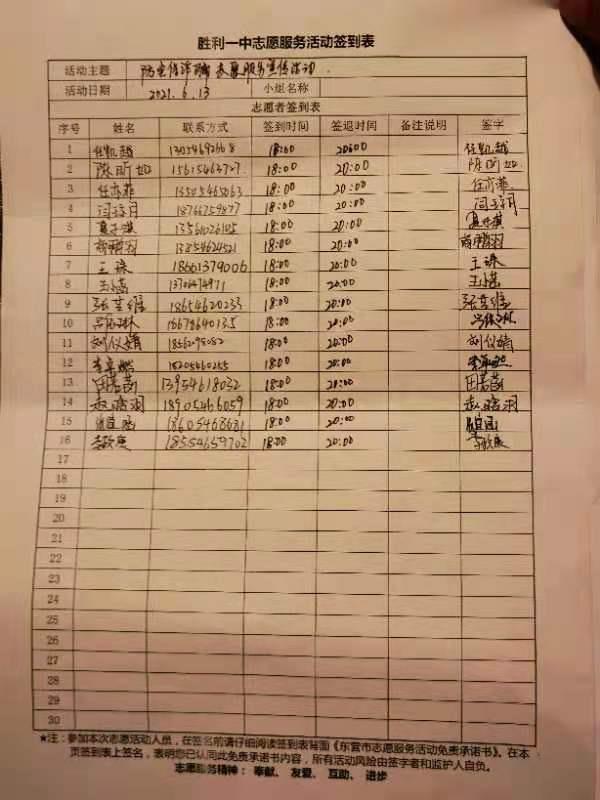 胜利一中志愿服务活动签到表
活动主题 志愿服务宣传活动
活动日期 2021.6.13 小组名称
志愿者签到表
序号 姓名 联系方式 签到时间 签退时间 备注说明 签字
1 任凯越 18:00 20:00 任凯越
2 陈昕如 15615463727 18:00 20:00 陈昕如
3 任亦菲 18:00 20:00 任亦菲
4 18766759877 18:00 20:00
5 13561026105 18:00 20:00
6 13854624521 18:00 20:00
7 王 18661379006 18:00 20:00 王
8 王 13706474971 18:00 20:00 王
9 张 18654620233 18:00 20:00 张
10 18678640135 18:00 20:00
11 刘仪婧 18562095082 18:00 20:00 刘仪婧
12 18205460255 18:00 20:00
13 田 13954618032 18:00 20:00 田
14 赵晗羽 18905466059 18:00 20:00 赵晗羽
15 18605468681 18:00 20:00
16 李 18554659702 18:00 20:00 李
17
18
19
20
21
22
23
24
25
26
27
28
29
30
★注：参加本次志愿活动人员，在签名前请仔细阅读签到表背面《东营市志愿服务活动免责承诺书》。在本
页签到表上签名，表明您已认同此免责承诺书内容，所有活动风险由签字者和监护人自负。
志愿服务精神：奉献、友爱、互助、进步